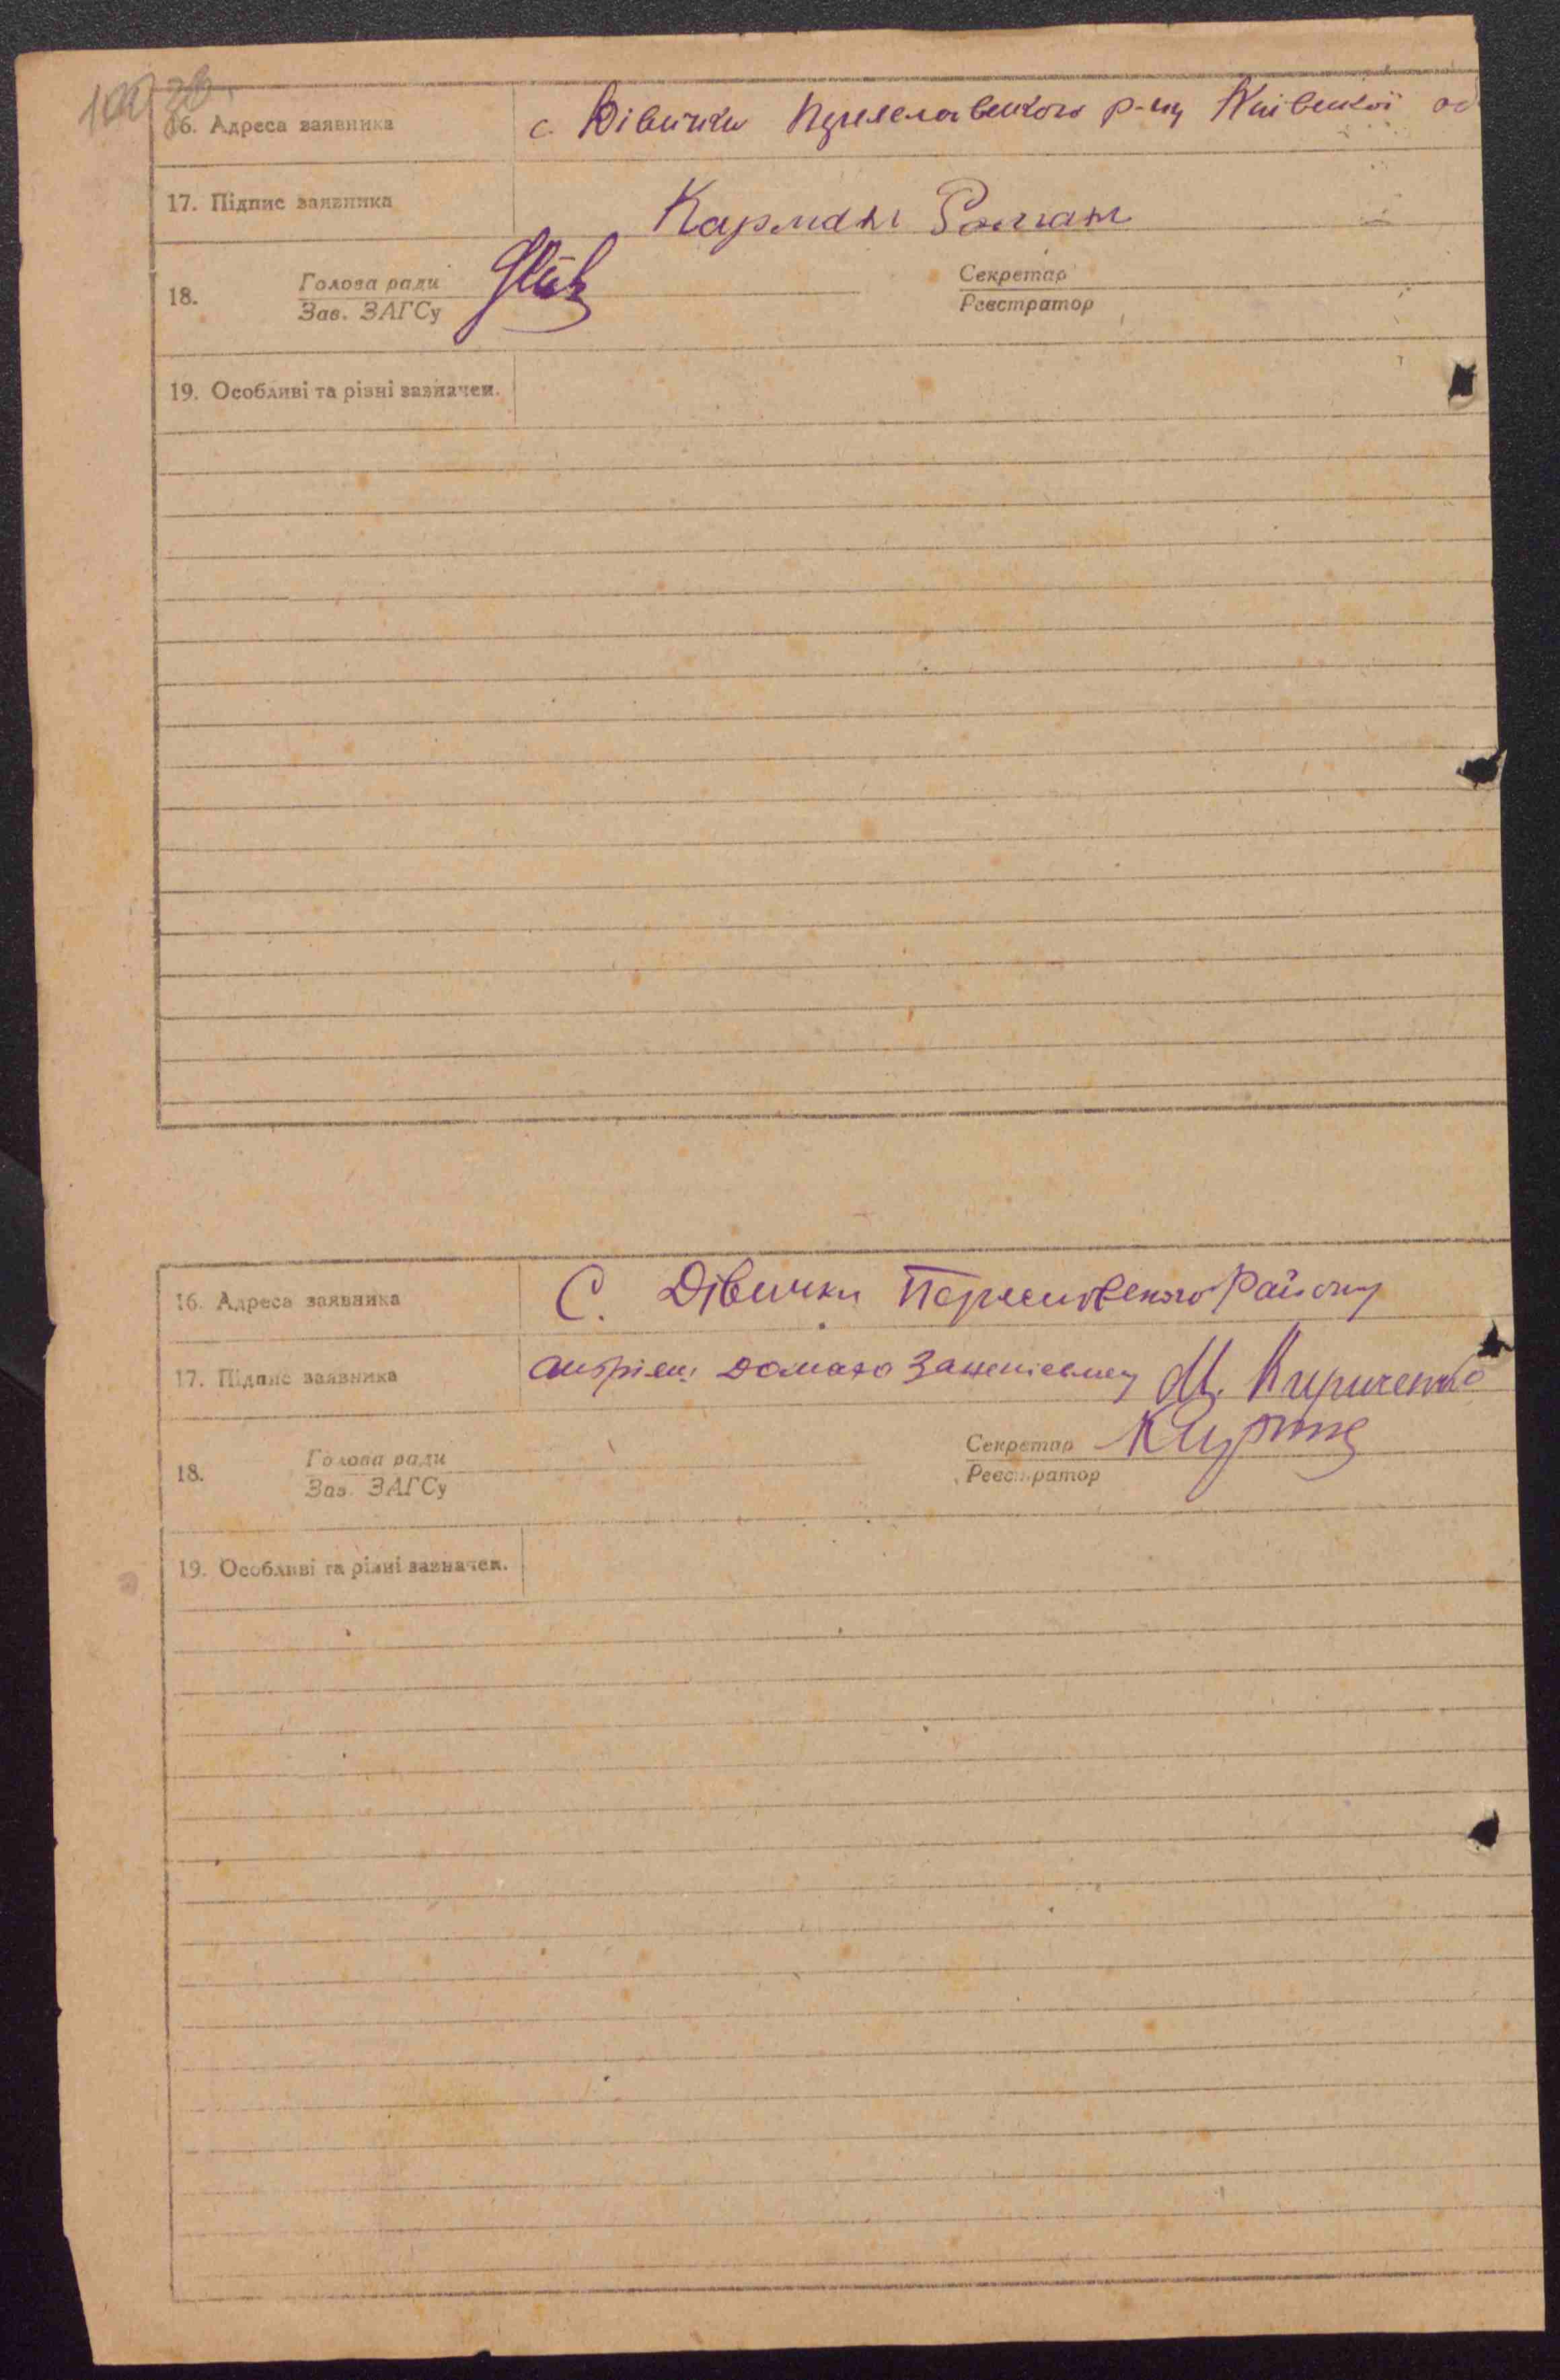 16. Адреса заявника с. Дівички Переяславського р-ну Київської об
17. Підпис заявника Карман Роман
18. Голова ради Секретар
Зав. ЗАГСу Реєстратор
19. Особливі та різні зазначен.
16. Адреса заявника С. Дівички Району
17. Підпис заявника М. Кириченко
18. Голова ради Секретар
Зав. ЗАГСу Реєстратор
19. Особливі та різні зазначен.